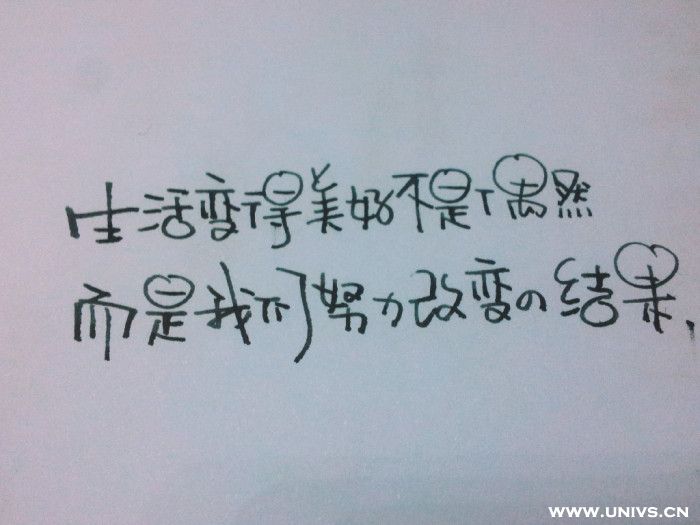 生活变得美好不是偶然
而是我们努力改变の结果、
WWW.UNIVS.CN